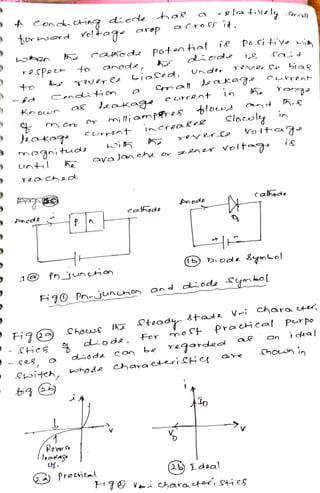 A conducting diode has a relatively small
forward voltage drop across it.
When the cathode potential is positive with
respect to anode, the diode is said
to be reverse biased. Under reverse bias
-ed condition a small leakage current
known as leakage current in the range
of micro or milliamperes flows and this
leakage current increases slowly in
magnitude with the reverse voltage
until the avalanche or zener voltage is
reached.
Anode
p
n
cathode
Anode
cathode
D1
1(a) Pn junction
(1b) Diode Symbol
Fig(1) Pn-junction and diode symbol
Fig(2a) shows the steady state V-i character
-stics of diode. For most practical purpo
-ses, a diode can be regarded as an ideal
switch, whose characteristics are shown in
fig (2b)
i
V
Reverse
leakage
i
ID
VD
V
(2a) Practical
(2b) Ideal
Fig(2) V-i characteristics